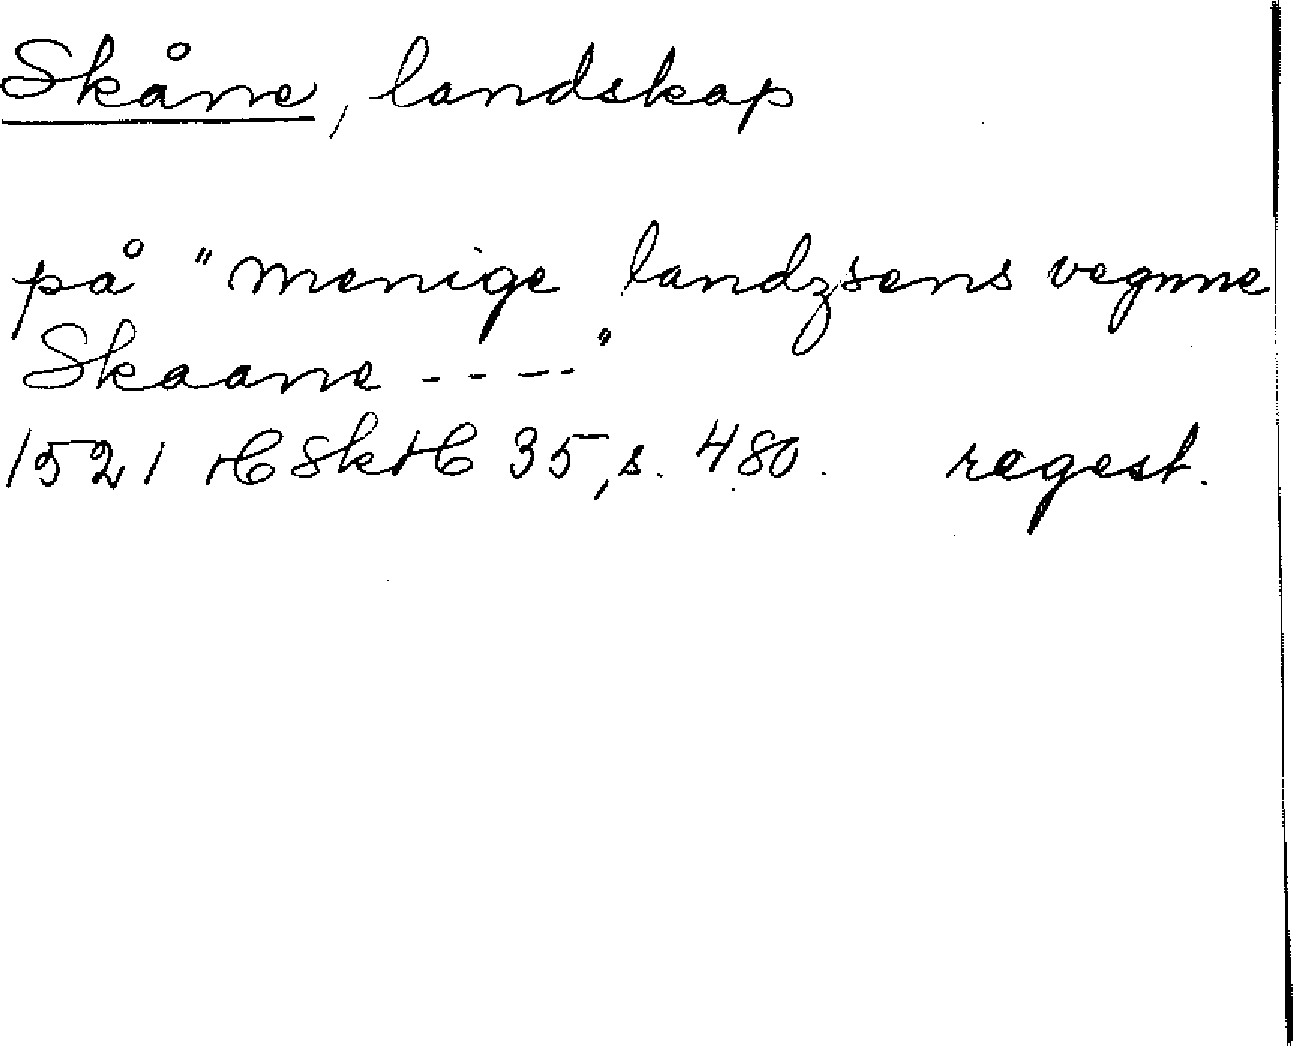 Skåne, landskap
på "menige landzsens vegnne
Skaane - - - -"
1521 HSkrH 35, s. 480. regest.